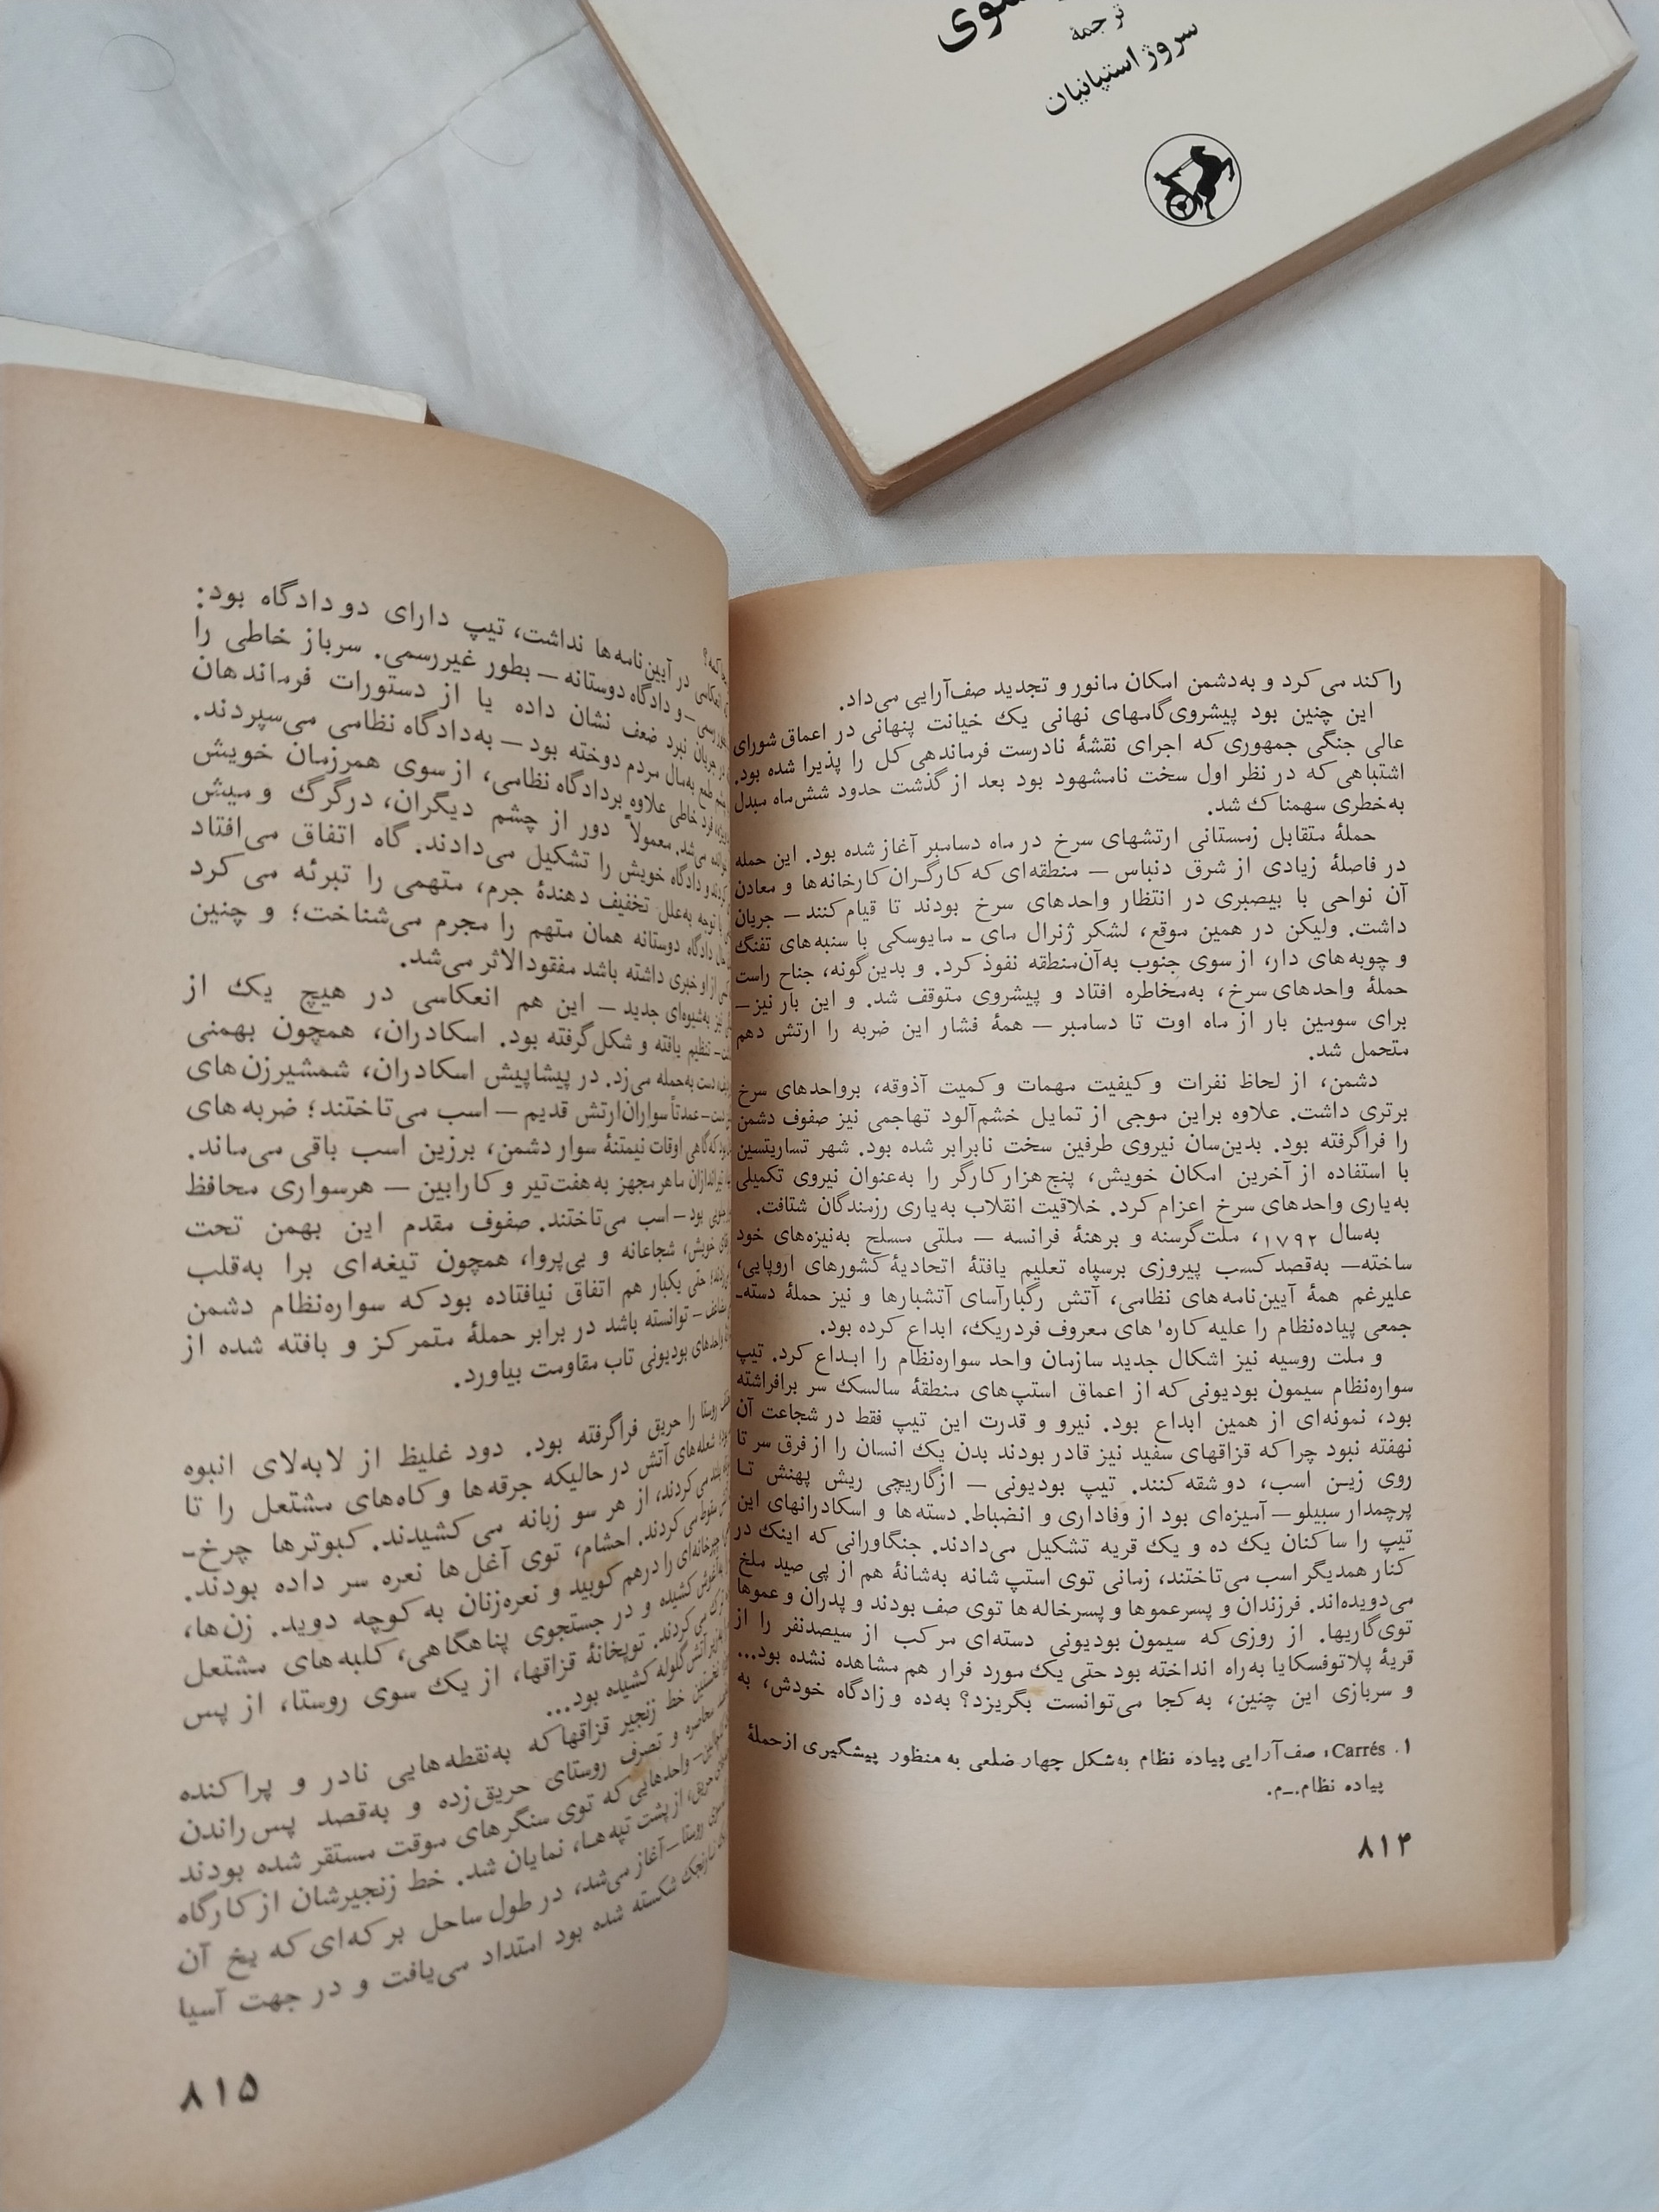 ترجمهٔ
سروژ استپانیان
را کند می‌کرد و به‌دشمن امکان مانور و تجدید صف‌آرایی می‌داد.
این چنین بود پیشروی‌گامهای نهانی یک خیانت پنهانی در اعماق شورای
عالی جنگی جمهوری که اجرای نقشهٔ نادرست فرماندهی کل را پذیرا شده بود.
اشتباهی که در نظر اول سخت نامشهود بود بعد از گذشت حدود شش‌ماه مبدل
به‌خطری سهمناک شد.
حملهٔ متقابل زمستانی ارتشهای سرخ در ماه دسامبر آغاز شده بود. این حمله
در فاصلهٔ زیادی از شرق دنباس — منطقه‌ای که کارگران کارخانه‌ها و معادن
آن نواحی با بیصبری در انتظار واحدهای سرخ بودند تا قیام کنند — جریان
داشت. ولیکن در همین موقع، لشکر ژنرال مای - مایوسکی با سنبه‌های تفنگ
و چوبه‌های دار، از سوی جنوب به‌آن‌منطقه نفوذ کرد. و بدین‌گونه، جناح راست
حملهٔ واحدهای سرخ، به‌مخاطره افتاد و پیشروی متوقف شد. و این بار نیز —
برای سومین بار از ماه اوت تا دسامبر — همهٔ فشار این ضربه را ارتش دهم
متحمل شد.
دشمن، از لحاظ نفرات و کیفیت مهمات و کمیت آذوقه، برواحدهای سرخ
برتری داشت. علاوه براین موجی از تمایل خشم‌آلود تهاجمی نیز صفوف دشمن
را فراگرفته بود. بدین‌سان نیروی طرفین سخت نابرابر شده بود. شهر تساریتسین
با استفاده از آخرین امکان خویش، پنج هزار کارگر را به‌عنوان نیروی تکمیلی
به‌یاری واحدهای سرخ اعزام کرد. خلاقیت انقلاب به‌یاری رزمندگان شتافت.
به‌سال ۱۷۹۲، ملت‌گرسنه و برهنهٔ فرانسه — ملتی مسلح به‌نیزه‌های خود
ساخته— به‌قصد کسب پیروزی برسپاه تعلیم یافتهٔ اتحادیهٔ کشورهای اروپایی،
علیرغم همهٔ آیین‌نامه‌های نظامی، آتش رگبارآسای آتشبارها و نیز حملهٔ دسته-
جمعی پیاده‌نظام را علیه کاره۱های معروف فردریک، ابداع کرده بود.
و ملت روسیه نیز اشکال جدید سازمان واحد سواره‌نظام را ابداع کرد. تیپ
سواره‌نظام سیمون بودیونی که از اعماق استپ‌های منطقهٔ سالسک سر برافراشته
بود، نمونه‌ای از همین ابداع بود. نیرو و قدرت این تیپ فقط در شجاعت آن
نهفته نبود چرا که قزاقهای سفید نیز قادر بودند بدن یک انسان را از فرق سر تا
روی زین اسب، دو شقه کنند. تیپ بودیونی — ازگاریچی ریش پهنش تا
پرچمدار سبیلو — آمیزه‌ای بود از وفاداری و انضباط. دسته‌ها و اسکادرانهای این
تیپ را ساکنان یک ده و یک قریه تشکیل می‌دادند. جنگاورانی که اینک در
کنار همدیگر اسب می‌تاختند، زمانی توی استپ شانه به‌شانهٔ هم از پی صید ملخ
می‌دویده‌اند. فرزندان و پسرعموها و پسرخاله‌ها توی صف بودند و پدران و عموها
توی گاریها. از روزی که سیمون بودیونی دسته‌ای مرکب از سیصدنفر را از
قریهٔ پلاتوفسکایا به‌راه انداخته بود حتی یک مورد فرار هم مشاهده نشده بود...
و سربازی این چنین، به کجا می‌توانست بگریزد؟ به‌ده و زادگاه خودش، به
۱. Carrés، صف‌آرایی پیاده نظام به‌شکل چهار ضلعی به منظور پیشگیری از حملهٔ
پیاده نظام.ـ م.
۸۱۴
در آیین‌نامه‌ها نداشت، تیپ دارای دو دادگاه بود:
و دادگاه دوستانه — بطور غیررسمی. سرباز خاطی را
جریان نبرد ضعف نشان داده یا از دستورات فرماندهان
طمع به‌مال مردم دوخته بود — به‌دادگاه نظامی می‌سپردند.
فرد خاطی علاوه بردادگاه نظامی، از سوی همرزمان خویش
می‌شد. معمولاً دور از چشم دیگران، درگرگ و میش
و دادگاه خویش را تشکیل می‌دادند. گاه اتفاق می‌افتاد
با توجه به‌علل تخفیف دهندهٔ جرم، متهمی را تبرئه می‌کرد
دادگاه دوستانه همان متهم را مجرم می‌شناخت؛ و چنین
از او خبری داشته باشد مفقودالاثر می‌شد.
نیز به‌شیوه‌ای جدید — این هم انعکاسی در هیچ یک از
تنظیم یافته و شکل‌گرفته بود. اسکادران، همچون بهمنی
دست به‌حمله می‌زد. در پیشاپیش اسکادران، شمشیرزن‌های
— عمدتاً سواران‌ارتش قدیم — اسب می‌تاختند؛ ضربه‌های
که‌گاهی اوقات نیمتنهٔ سوار دشمن، برزین اسب باقی می‌ماند.
تیراندازان ماهر مجهز به‌هفت‌تیر و کارابین — هرسواری محافظ
بود — اسب می‌تاختند. صفوف مقدم این بهمن تحت
خویش، شجاعانه و بی‌پروا، همچون تیغه‌ای برا به‌قلب
حتی یکبار هم اتفاق نیافتاده بود که سواره‌نظام دشمن
— توانسته باشد در برابر حملهٔ متمرکز و بافته شده از
واحدهای بودیونی تاب مقاومت بیاورد.
روستا را حریق فراگرفته بود. دود غلیظ از لابه‌لای انبوه
شعله‌های آتش در حالیکه جرقه‌ها و کاه‌های مشتعل را تا
بلند می‌کردند، از هر سو زبانه می‌کشیدند. کبوترها چرخ-
سقوط می‌کردند. احشام، توی آغل‌ها نعره سر داده بودند.
را درهم کوبید و نعره‌زنان به‌کوچه دوید. زن‌ها،
کشیده و در جستجوی پناهگاهی، کلبه‌های مشتعل
می‌کردند. توپخانهٔ قزاقها، از یک سوی روستا، از پس
آتش گلوله کشیده بود...
نخستین خط زنجیر قزاقها که به‌نقطه‌هایی نادر و پراکنده
محاصره و تصرف روستای حریق‌زده و به‌قصد پس‌راندن
— واحدهایی که توی سنگرهای موقت مستقر شده بودند
از پشت تپه‌ها، نمایان شد. خط زنجیرشان از کارگاه
روستا — آغاز می‌شد، در طول ساحل برکه‌ای که یخ آن
نارنجک شکسته شده بود امتداد می‌یافت و در جهت آسیا
۸۱۵